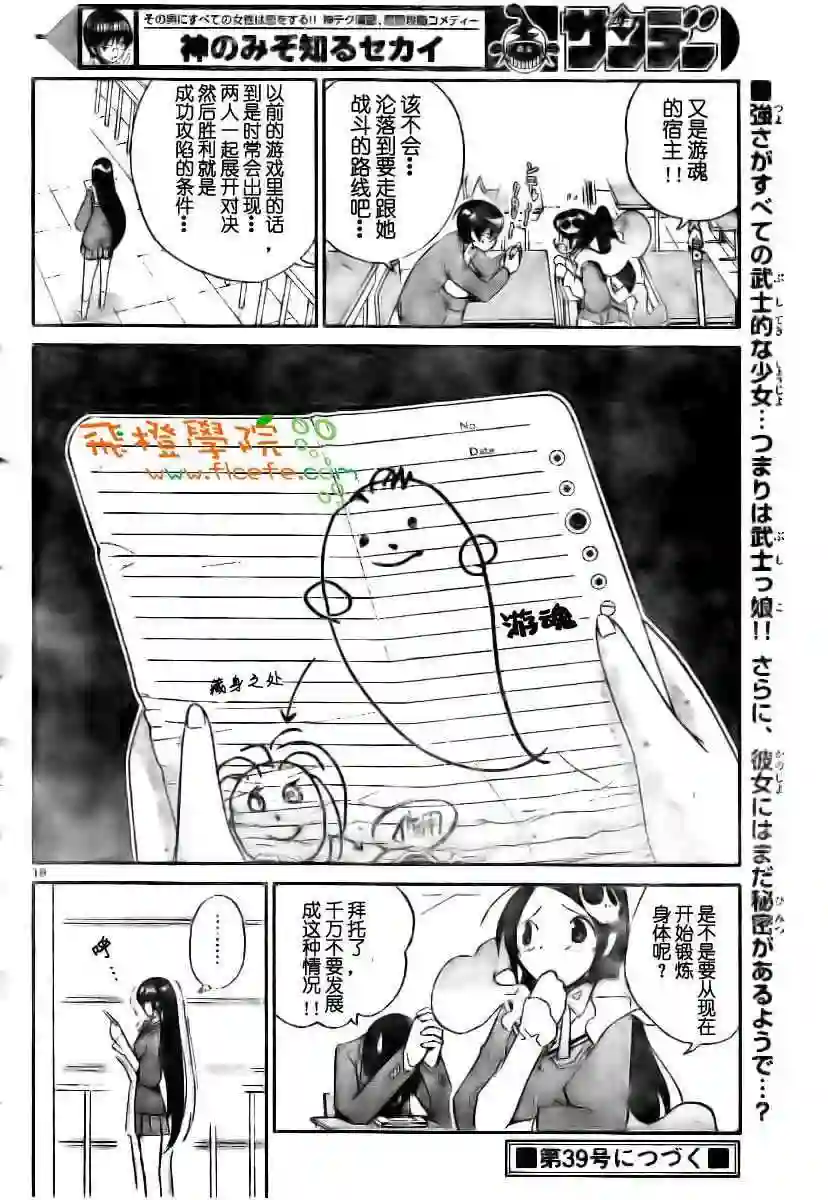 その男にすべての女性は恋をする!!
神のみぞ知るセカイ
サンデー
又是游魂
的宿主!!
该不会…
沦落到要走跟她
战斗的路线吧…
以前的游戏里的话，
到是时常会出现…
两人一起展开对决
然后胜利就是
成功攻陷的条件…
■強さがすべての武士的な少女…つまりは武士っ娘!! さらに、彼女にはまだ秘密があるようで…?
飛橙學院
www.flcefe.com
No.
Date
游魂
藏身之处
18
是不是要从现在
开始锻炼
身体呢?
拜托了，
千万不要发展
成这种情况!!
………
呼…
■第39号につづく■